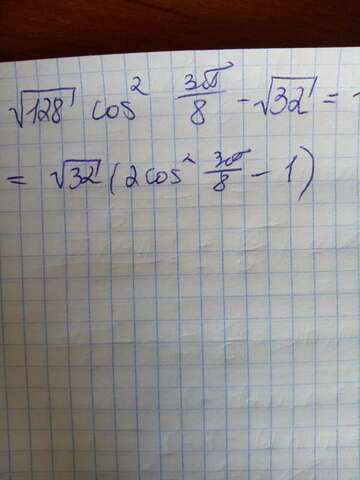 √128 cos² 3π/8 - √32 =
= √32 (2cos² 3π/8 - 1)